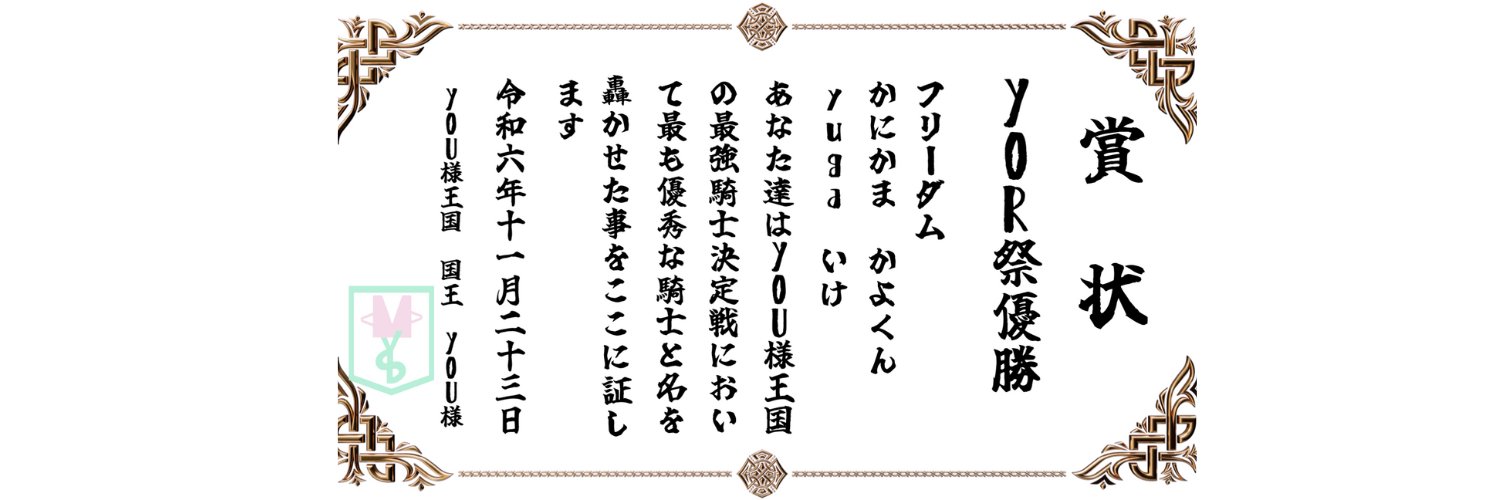 賞 状
yOR祭優勝
フリーダム
かにかま かよくん
yuga いけ
あなた達はyOU様王国
の最強騎士決定戦におい
て最も優秀な騎士と名を
轟かせた事をここに証し
ます
令和六年十一月二十三日
yOU様王国 国王 yOU様